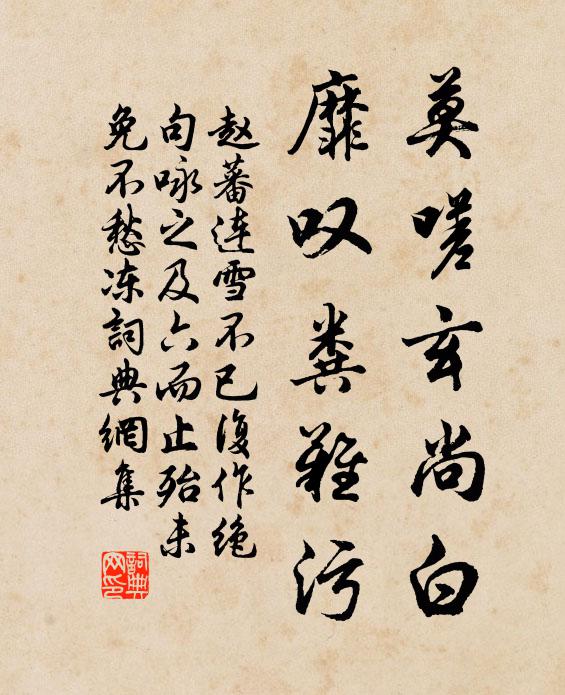 莫嗟玄尚白
靡叹粪難污
赵蕃連雪不已復作绝
句咏之及六而止殆未
免不愁冻詞典網集
詞典網印